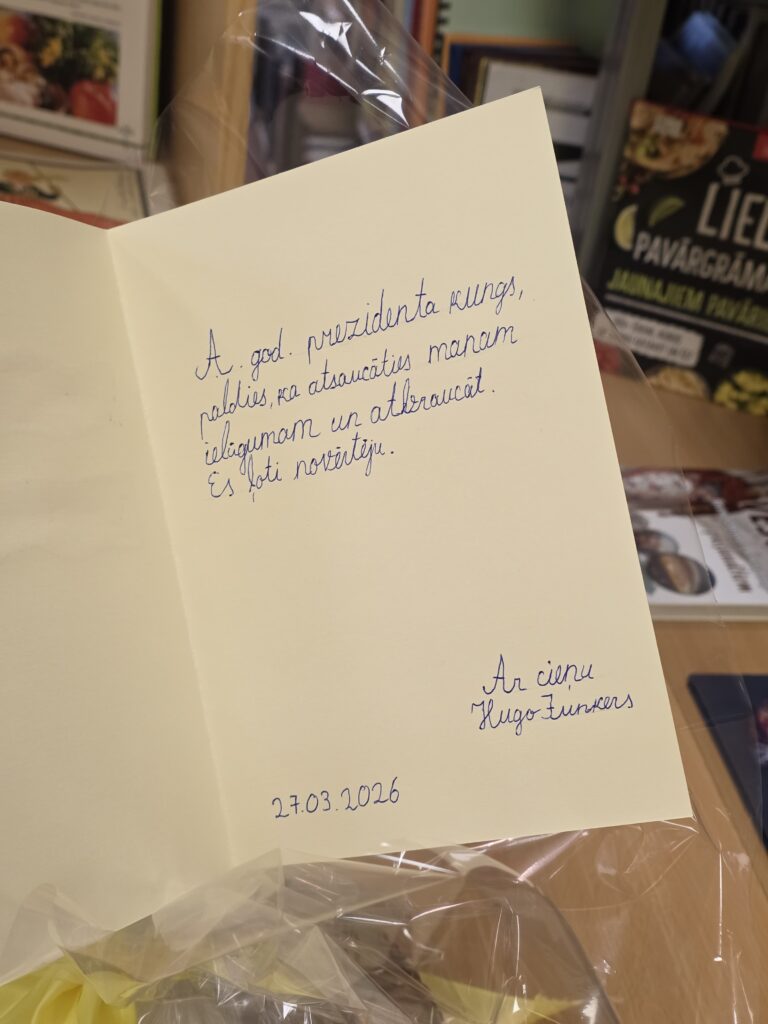 A. god. prezidenta kungs,
paldies, ka atsaucāties manam
ielūgumam un atbraucāt.
Es ļoti novērtēju.
Ar cieņu
Hugo Zunkers
27.03.2026
LIEL
PAVĀRGRĀMA
JAUNAJIEM PAVĀR